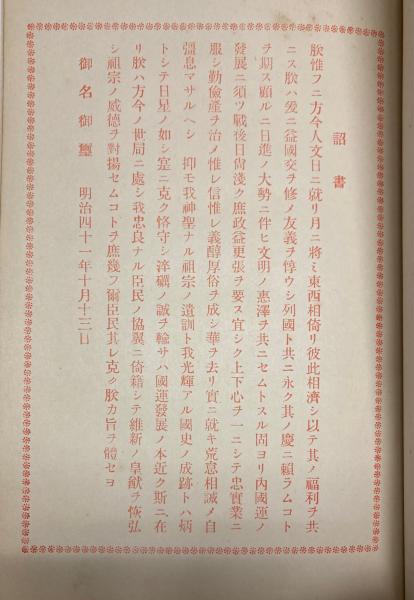 詔書
朕惟フニ方今人文日ニ就リ月ニ將ミ東西相倚リ彼此相濟シ以テ其ノ福利ヲ共
ニス朕ハ爰ニ益國交ヲ修メ友義ヲ惇ウシ列國ト共ニ永ク其ノ慶ニ賴ラムコト
ヲ期ス顧ルニ日進ノ大勢ニ伴ヒ文明ノ惠澤ヲ共ニセムトスル固ヨリ內國運ノ
發展ニ須ツ戰後日尙淺ク庶政益更張ヲ要ス宜シク上下心ヲ一ニシテ忠實業ニ
服シ勤儉產ヲ治メ惟レ信惟レ義醇厚俗ヲ成シ華ヲ去リ實ニ就キ荒怠相誡メ自
彊息マサルヘシ 抑モ我神聖ナル祖宗ノ遺訓ト我光輝アル國史ノ成跡トハ炳
トシテ日星ノ如シ寔ニ克ク恪守シ淬礪ノ誠ヲ輸サハ國運發展ノ本近ク斯ニ在
リ朕ハ方今ノ世局ニ處シ我忠良ナル臣民ノ協翼ニ倚藉シテ維新ノ皇猷ヲ恢弘
シ祖宗ノ威德ヲ對揚セムコトヲ庶幾フ爾臣民其レ克ク朕カ旨ヲ體セヨ
御名御璽 明治四十一年十月十三日